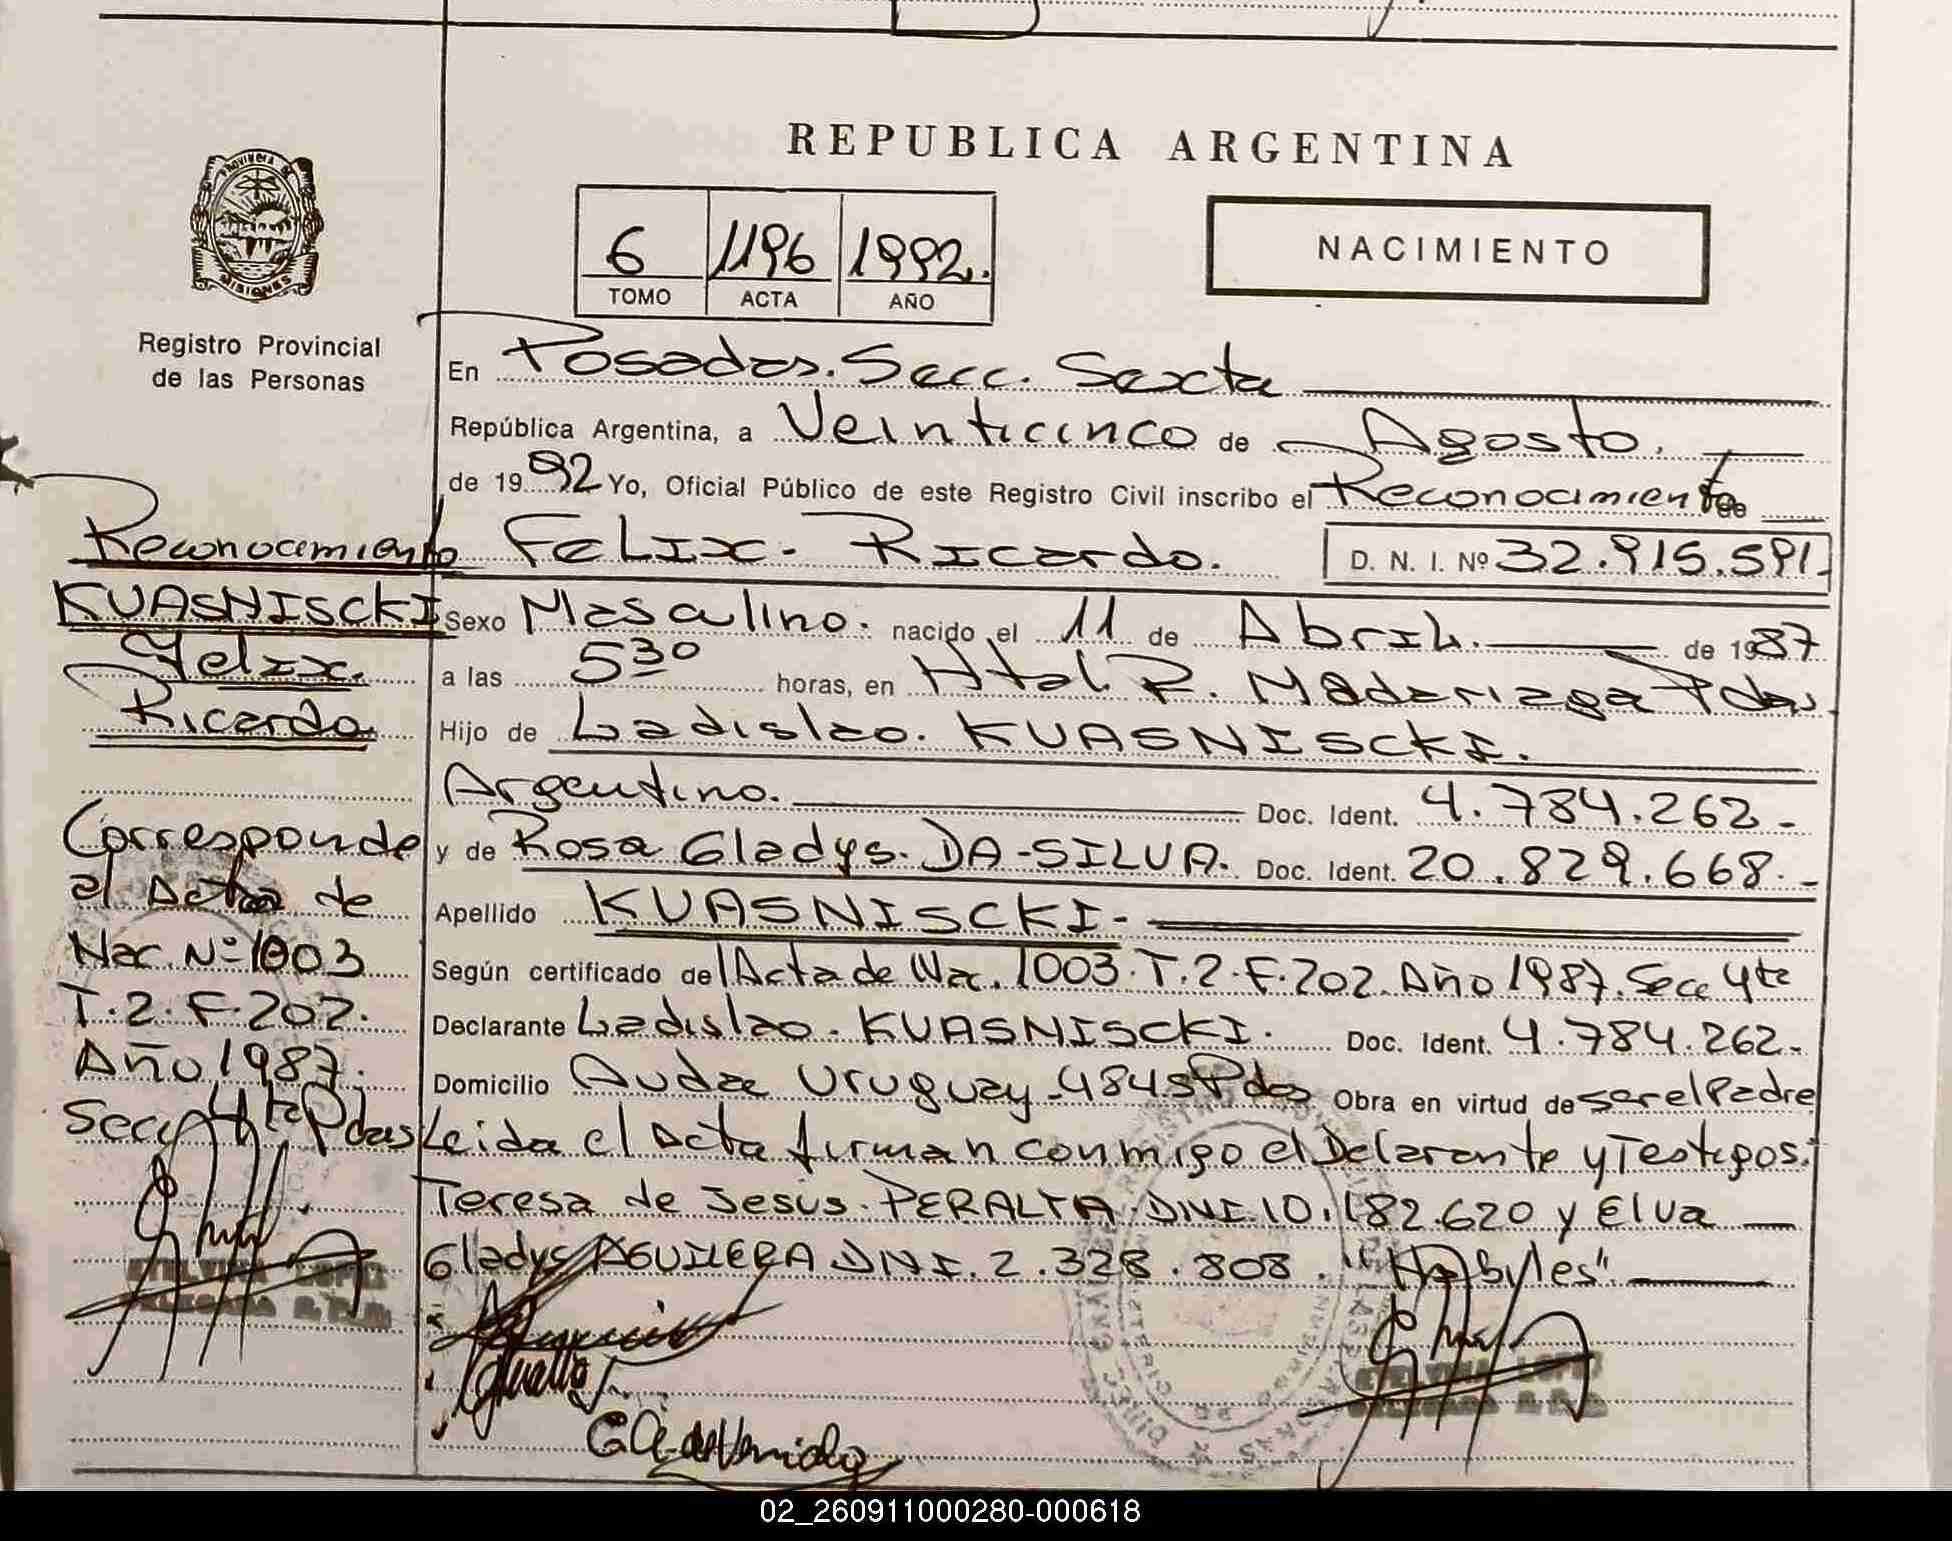 REPUBLICA ARGENTINA
PROVINCIA DE
MISIONES
Registro Provincial
de las Personas
6 1196 1992.
TOMO ACTA AÑO
NACIMIENTO
En Posadas. Secc. Sexta
República Argentina, a Veinticinco de Agosto.
de 1992 Yo, Oficial Público de este Registro Civil inscribo el Reconocimiento
de
Felix- Ricardo. D. N. I. Nº 32.915.591.
Sexo Masculino. nacido el 11 de Abril. de 1987
a las 5 30 horas, en Htal. R. Madariaga Pdas.
Hijo de Ladislao. KUASNISCKI.
Argentino. Doc. Ident. 4.784.262-
y de Rosa Gladys. DA-SILVA. Doc. Ident. 20.829.668.-
Apellido KUASNISCKI-
Según certificado de Acta de Nac. 1003. T.2.F.202. Año 1987. Secc 4ta
Declarante Ladislao. KUASNISCKI. Doc. Ident. 4.784.262-
Domicilio Avda Uruguay-4845 Pdas Obra en virtud de ser el Padre
Leida el acta firman conmigo el Declarante y Testigos:
Teresa de Jesús. PERALTA. DNI. 10.182.620 y Elva
Gladys AGUILERA DNI. 2.328.808. "Habyles"
Reconocimiento
KUASNISCKI
Felix.
Ricardo.
Corresponde
el acta de
Nac. Nº 1003
T.2.F.202.
Año 1987.
Secc 4ta Pdas
02_260911000280-000618